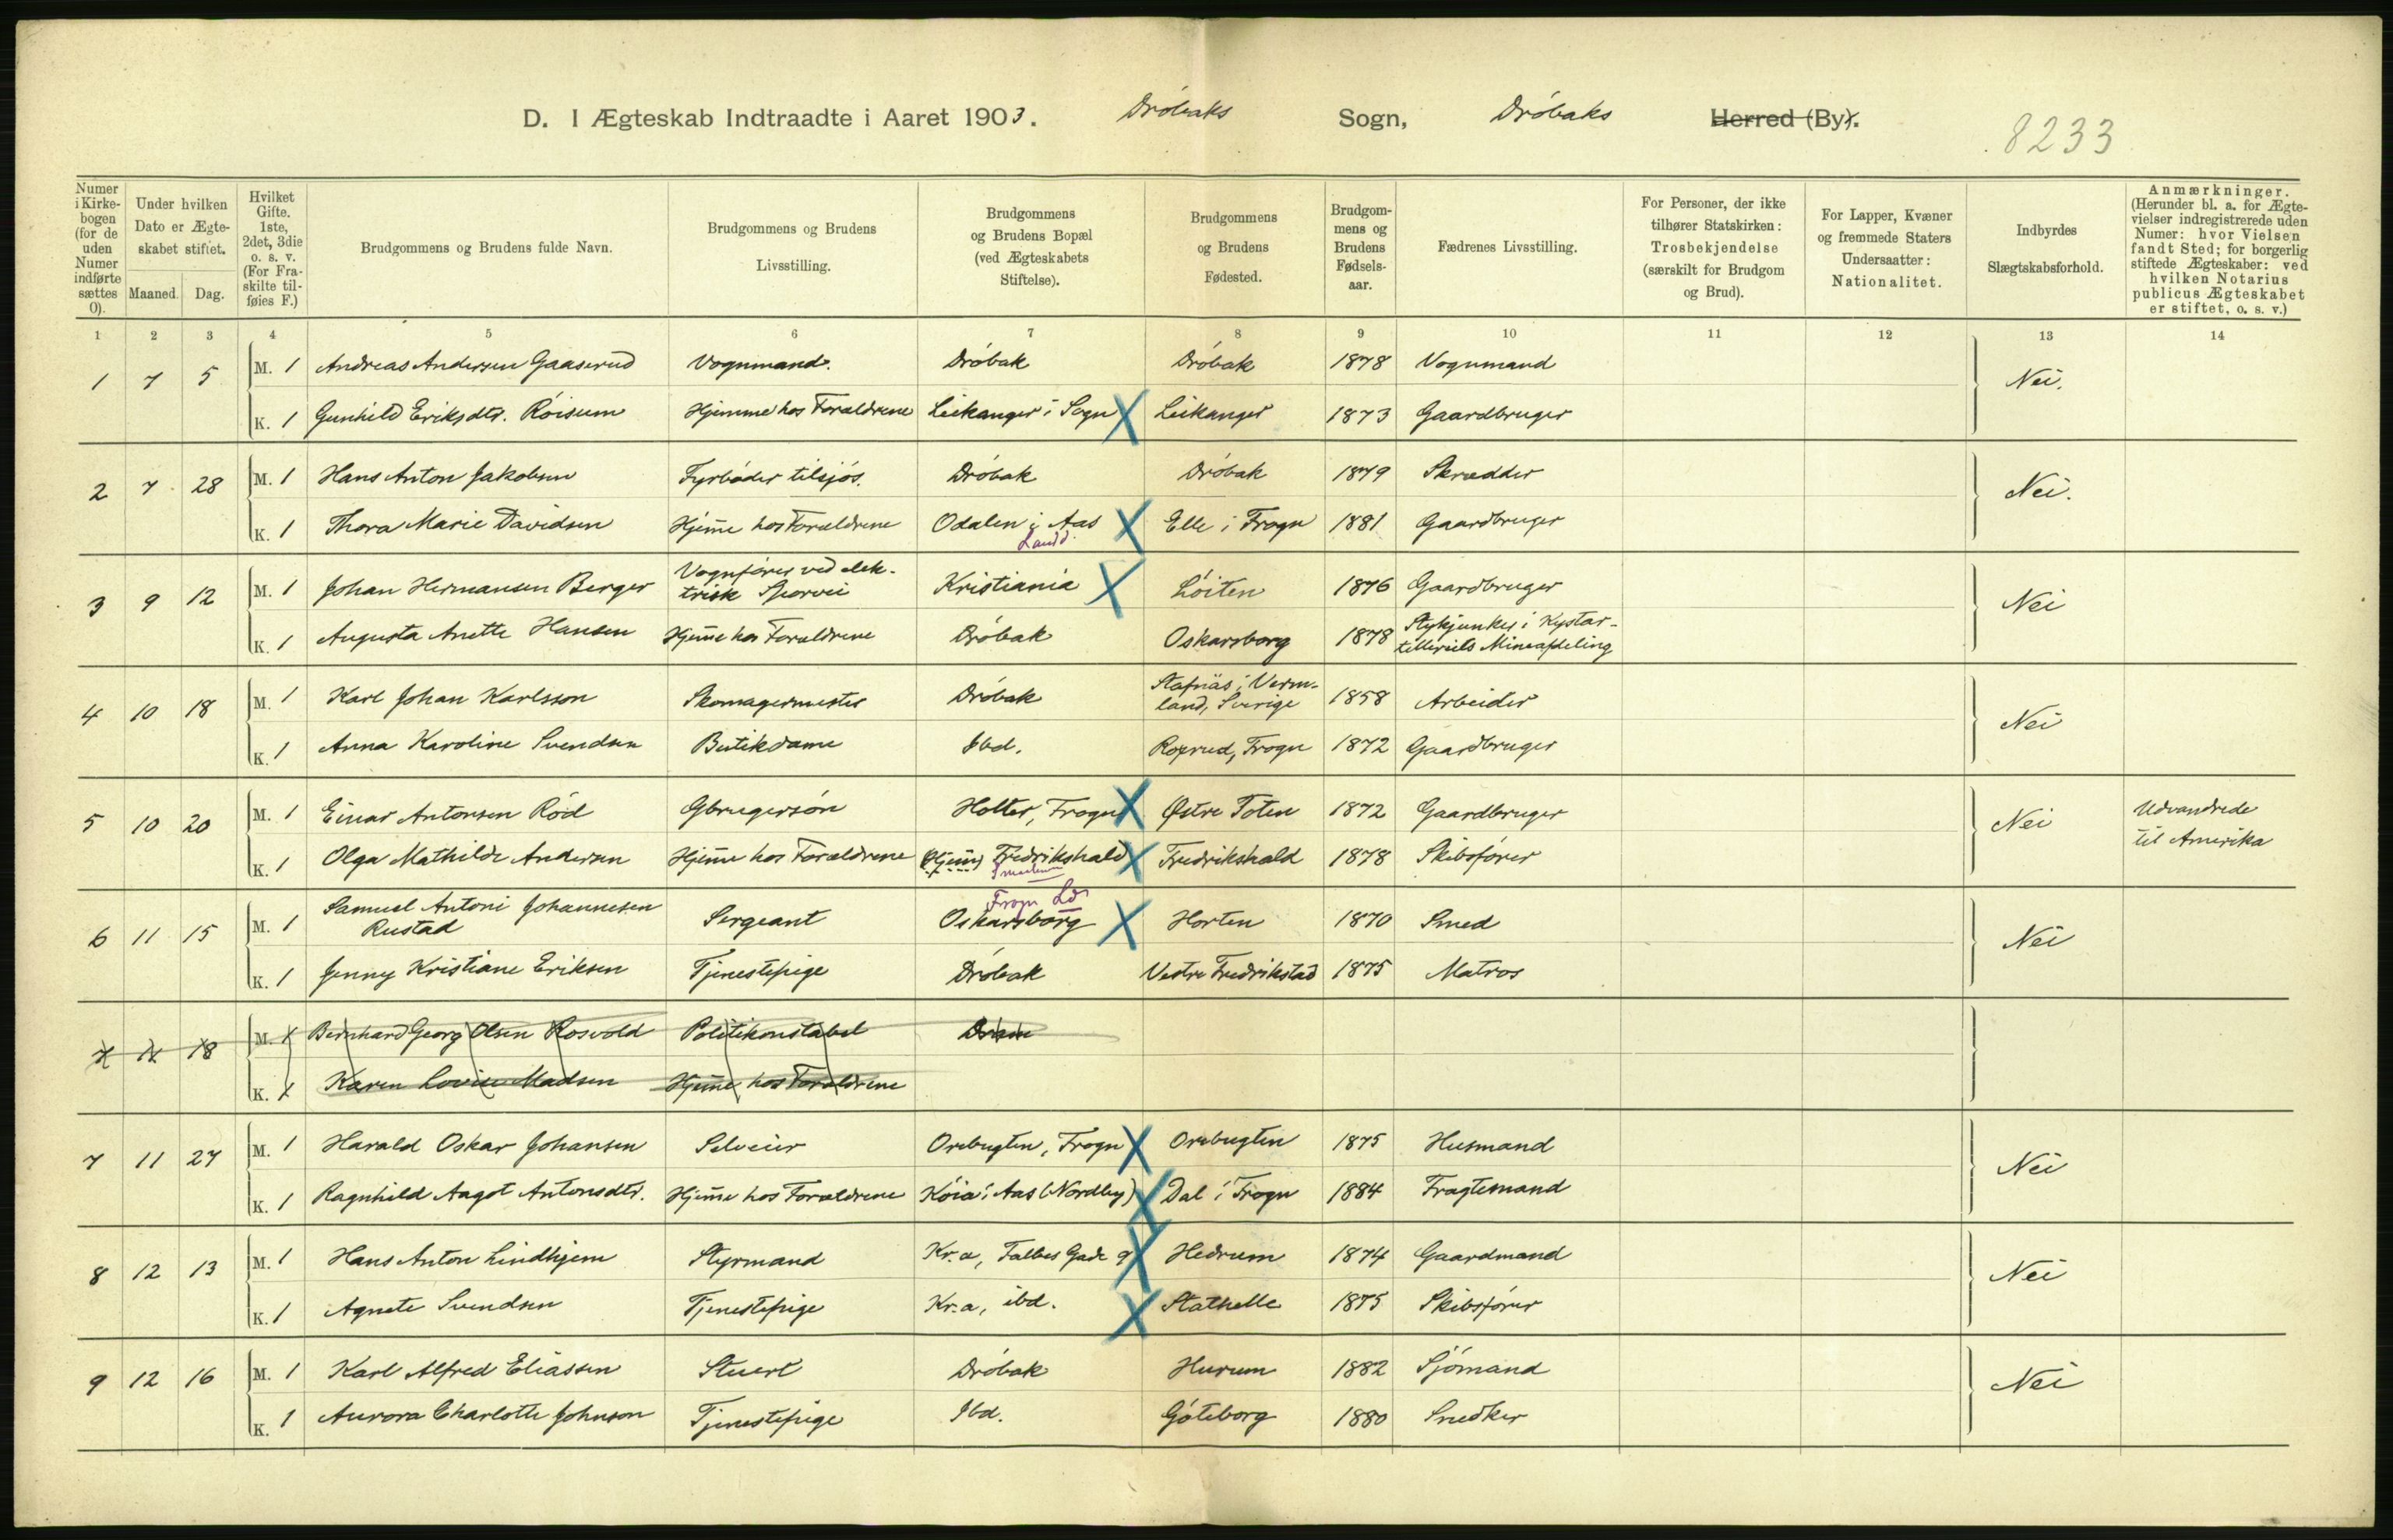 D. I Ægteskab Indtraadte i Aaret 1903. Drøbaks Sogn, Drøbaks Herred (By).
8233
Numer i Kirkebogen (for de uden Numer indførte sættes 0).
Under hvilken Dato er Ægteskabet stiftet.
Maaned. Dag.
Hvilket Gifte. 1ste, 2det, 3die o. s. v. (For Fraskilte tilføies F.)
Brudgommens og Brudens fulde Navn.
Brudgommens og Brudens Livsstilling.
Brudgommens og Brudens Bopæl (ved Ægteskabets Stiftelse).
Brudgommens og Brudens Fødested.
Brudgommens og Brudens Fødselsaar.
Fædrenes Livsstilling.
For Personer, der ikke tilhører Statskirken: Trosbekjendelse (særskilt for Brudgom og Brud).
For Lapper, Kvæner og fremmede Staters Undersaatter: Nationalitet.
Indbyrdes Slægtskabsforhold.
Anmærkninger. (Herunder bl. a. for Ægtevielser indregistrerede uden Numer: hvor Vielsen fandt Sted; for borgerlig stiftede Ægteskaber: ved hvilken Notarius publicus Ægteskabet er stiftet, o. s. v.)
1 2 3 4 5 6 7 8 9 10 11 12 13 14
1 7 5 M. 1 Andreas Andersen Gaaserud Vognmand. Drøbak Drøbak 1878 Vognmand Nei.
K. 1 Gunhild Eriksdtr. Røisum Hjemme hos Forældrene Leikanger i Sogn X Leikanger 1873 Gaardbruger
2 7 28 M. 1 Hans Anton Jakobsen Fyrbøder tilsjøs. Drøbak Drøbak 1879 Skrædder Nei.
K. 1 Thora Marie Davidsen Hjem̄e hos Forældrene Odalen i Aas X Elle i Frogn 1881 Gaardbruger
Landd.
3 9 12 M. 1 Johan Hermansen Berger Vognfører ved elektrisk Sporvei Kristiania X Løiten 1876 Gaardbruger Nei
K. 1 Augusta Anette Hansen Hjem̄e hos Forældrene Drøbak Oskarsborg 1878 Stykjunker i Kystartilleriets Mineafdeling
4 10 18 M. 1 Karl Johan Karlsson Skomagermester Drøbak Stafnäs i Vermland, Sverige 1858 Arbeider Nei
K. 1 Anna Karoline Svendsen Butikdame Ibd. Roprud, Frogn 1872 Gaardbruger
5 10 20 M. 1 Einar Antonsen Rød Gbrugersøn Holter, Frogn X Østre Toten 1872 Gaardbruger Nei Udvandrede til Amerika
K. 1 Olga Mathilde Andersen Hjem̄e hos Forældrene (Hjem̄) Fredrikshald X Fredrikshald 1878 Skibsfører
Frogn Ld
6 11 15 M. 1 Samuel Antoni Johannesen Rustad Sergeant Oskarsborg X Horten 1870 Smed Nei
K. 1 Jenny Kristiane Eriksen Tjenestepige Drøbak Vestre Fredrikstad 1875 Matros
7 11 18 M. 1 Bernhard Georg Olsen Rosvold Politikonstabel
K. 1 Karen Lovise Madsen Hjem̄e hos Forældrene
7 11 27 M. 1 Harald Oskar Johansen Selveier Orebugten, Frogn X Orebugten 1875 Husmand Nei
K. 1 Ragnhild Aagot Antonsdtr. Hjem̄e hos Forældrene Køia i Aas (Nordby) X Dal i Frogn 1884 Fragtemand
8 12 13 M. 1 Hans Anton Lindhjem Styrmand Kr.a, Falbes Gade 9 X Hedrum 1874 Gaardmand Nei
K. 1 Agnete Svendsen Tjenestepige Kr.a, ibd. X Stathelle 1875 Skibsfører
9 12 16 M. 1 Karl Alfred Eliassen Stuert Drøbak Hurum 1882 Sjømand Nei
K. 1 Aurora Charlotte Johnson Tjenestepige Ibd. Göteborg 1880 Snedker